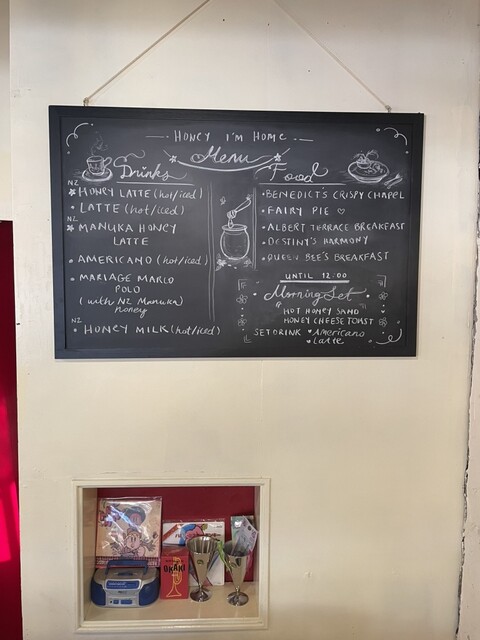 HONEY I'M HOME
Menu
Drinks
NZ
HONEY LATTE (hot/iced)
LATTE (hot/iced)
NZ
MANUKA HONEY
LATTE
AMERICANO (hot/iced)
MARIAGE MARCO
POLO
(with NZ Manuka)
honey
NZ
HONEY MILK (hot/iced)
Food
BENEDICT'S CRISPY CHAPEL
FAIRY PIE ♡
ALBERT TERRACE BREAKFAST
DESTINY'S HARMONY
QUEEN BEE'S BREAKFAST
UNTIL 12:00
Morning Set
HOT HONEY SAND
HONEY CHEESE TOAST
SET DRINK ♥Americano
♥Latte
UKAKI